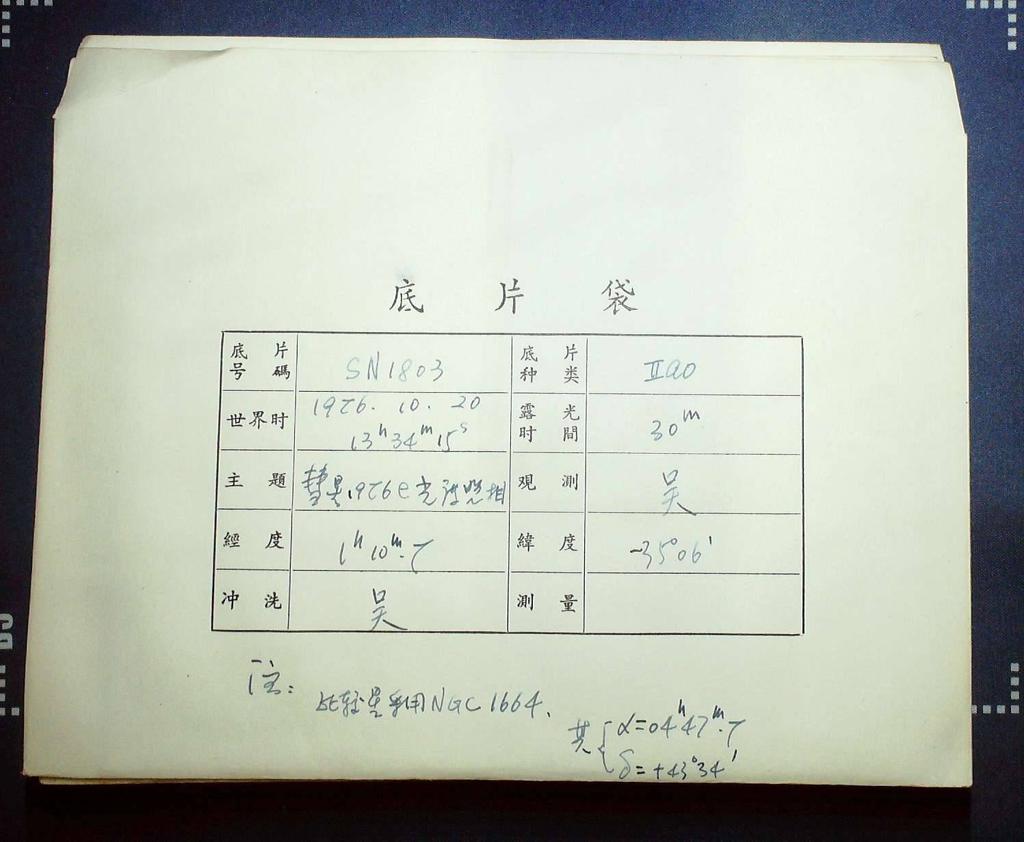 底片袋
底片号碼 SN1803 底片种类 IIao
世界时 1976. 10. 20
13h34m15s
露光时間 30m
主題 彗星1976e光谱照相 观測 吴
經度 1h10m.7 緯度 -35°06′
冲洗 吴 測量
注：比较星采用NGC 1664.
其 α=04h47m.7
δ=+43°34′